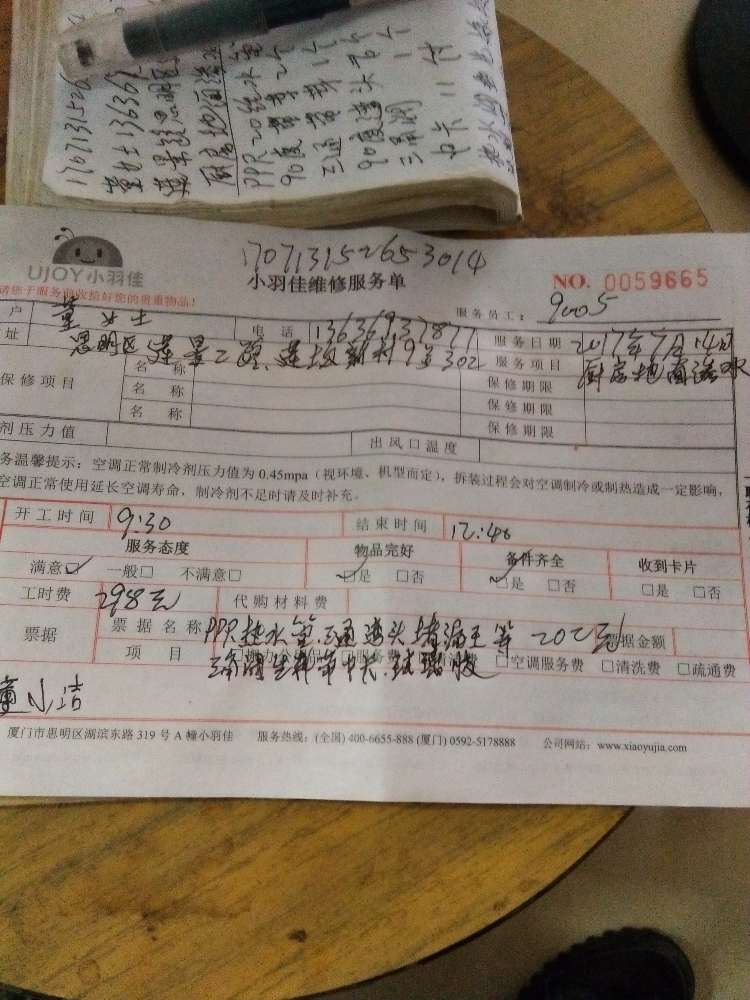 1707131526
董女士 136369
莲景二路思明区
厨房地面渗水
PPR20热水管
90度弯头2个
三通 1个
90度弯头6个
三角阀 1个
卡卡11付
UJOY小羽佳
17071315265 3014
小羽佳维修服务单
NO. 0059665
请您于服务前收拾好您的贵重物品!
服务员工: 9005
户 董女士 电话 13636937877 服务日期 2017年7月14日
址 思明区莲景二路 莲坂新村9号302 服务项目 厨房地面渗水
保修项目 名称 保修期限
名称 保修期限
名称 保修期限
剂压力值 出风口温度
务温馨提示:空调正常制冷剂压力值为 0.45mpa(视环境、机型而定),拆装过程会对空调制冷或制热造成一定影响,
空调正常使用延长空调寿命,制冷剂不足时请及时补充。
开工时间 9:30 结束时间 12:40
服务态度 物品完好 备件齐全 收到卡片
满意☑ 一般□ 不满意□ ☑是 □否 ☑是 □否 □是 □否
工时费 298元 代购材料费
票据 票据名称 PPR热水管.三通弯头堵漏王等 202元 票据金额
项目 三角阀生料带卡卡.玻璃胶 □空调服务费 □清洗费 □疏通费
董小洁
厦门市思明区湖滨东路 319 号 A 幢小羽佳 服务热线:(全国) 400-6655-888 (厦门) 0592-5178888 公司网站:www.xiaoyujia.com